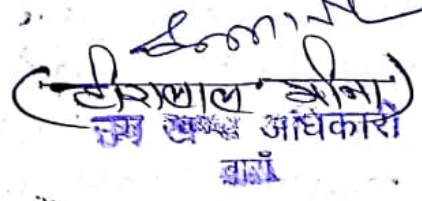 (हीरालाल मीना)
उप खण्ड अधिकारी
बारां